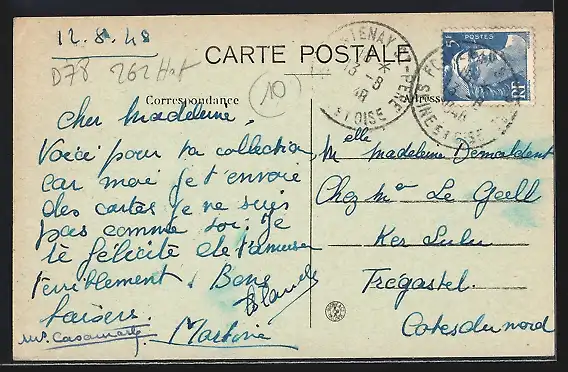 12.8.48
CARTE POSTALE
D78 262 Hat
(10)
Correspondance
Cher Madeleine,
Voici pour ta collection
car moi je t envoie
des cartes je ne suis
pas comme toi. Je
te félicite de t'amuser
terriblement. Bons
baisers.
Blanche
Martine
Mme Casamarte
Melle Madeleine Demaldent
Chez Mr Le Goell
Ker Lulu
Trégastel
Cotes du nord
POSTES
5F
RF
FONTENAY-LE-FLEURY
13-8
48
SEINE ET OISE